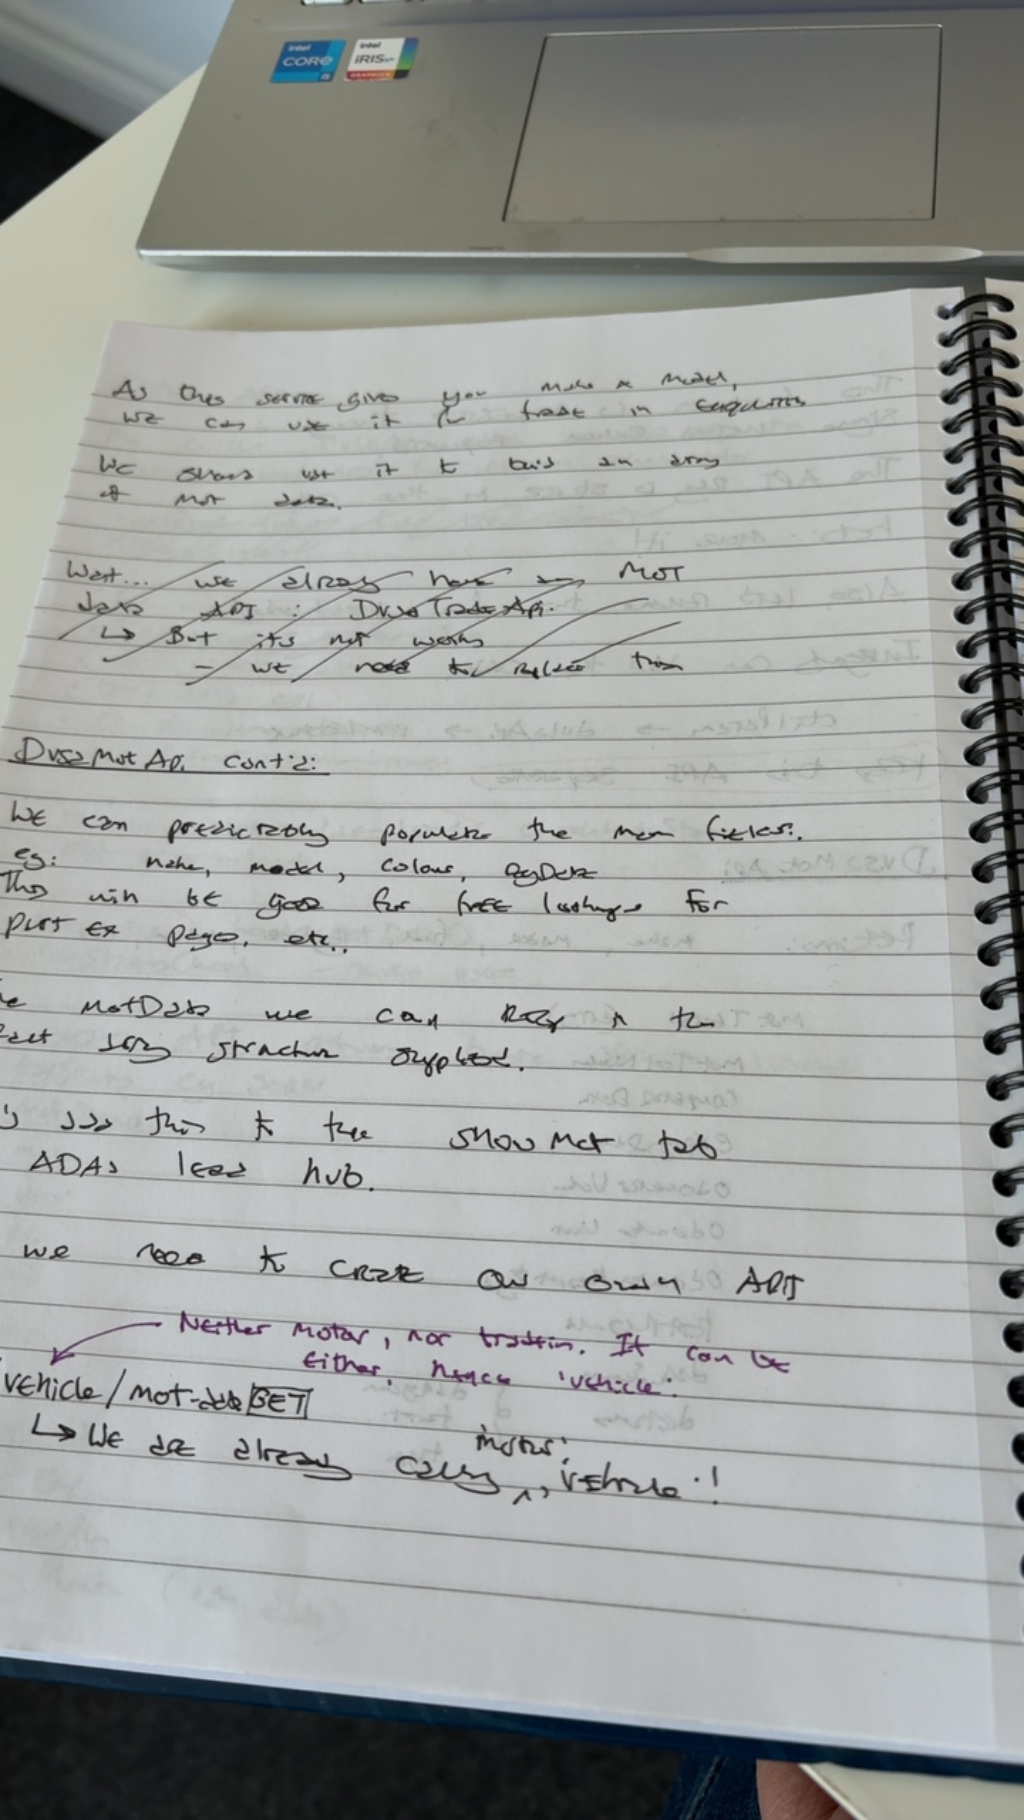 intel
CORE
i5
intel
iRIS xe
GRAPHICS
As this service gives you make & model,
we can use it for trade in enquiries
We should use it to build an array
of mot data.
Wait... we already have an MOT
data API: DvsaTradeApi.
↳ But its not works
- we need to replace this
DvsaMotApi cont'd:
We can predictably populate the main fields:.
eg: make, model, colour, regDate
This will be good for free lookups for
part ex pages, etc..
MotData we can rely on the
json structure supplied.
add this to the show Mot tab
ADAs lead hub.
we need to create our own API
Neither motor, nor tradein. It can be
either, hence 'vehicle'.
vehicle/mot-data GET
'motor',
↳ We are already calling ^ 'vehicle'!